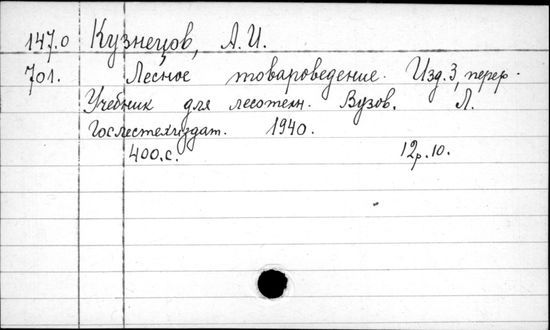 147.0 Кузнецов, А.И.
701. Лесное товароведение. Изд. 3, перер.
Учебник для лесотехн. Вузов. Л.
Гослестехиздат. 1940.
400.с. 12р.10.